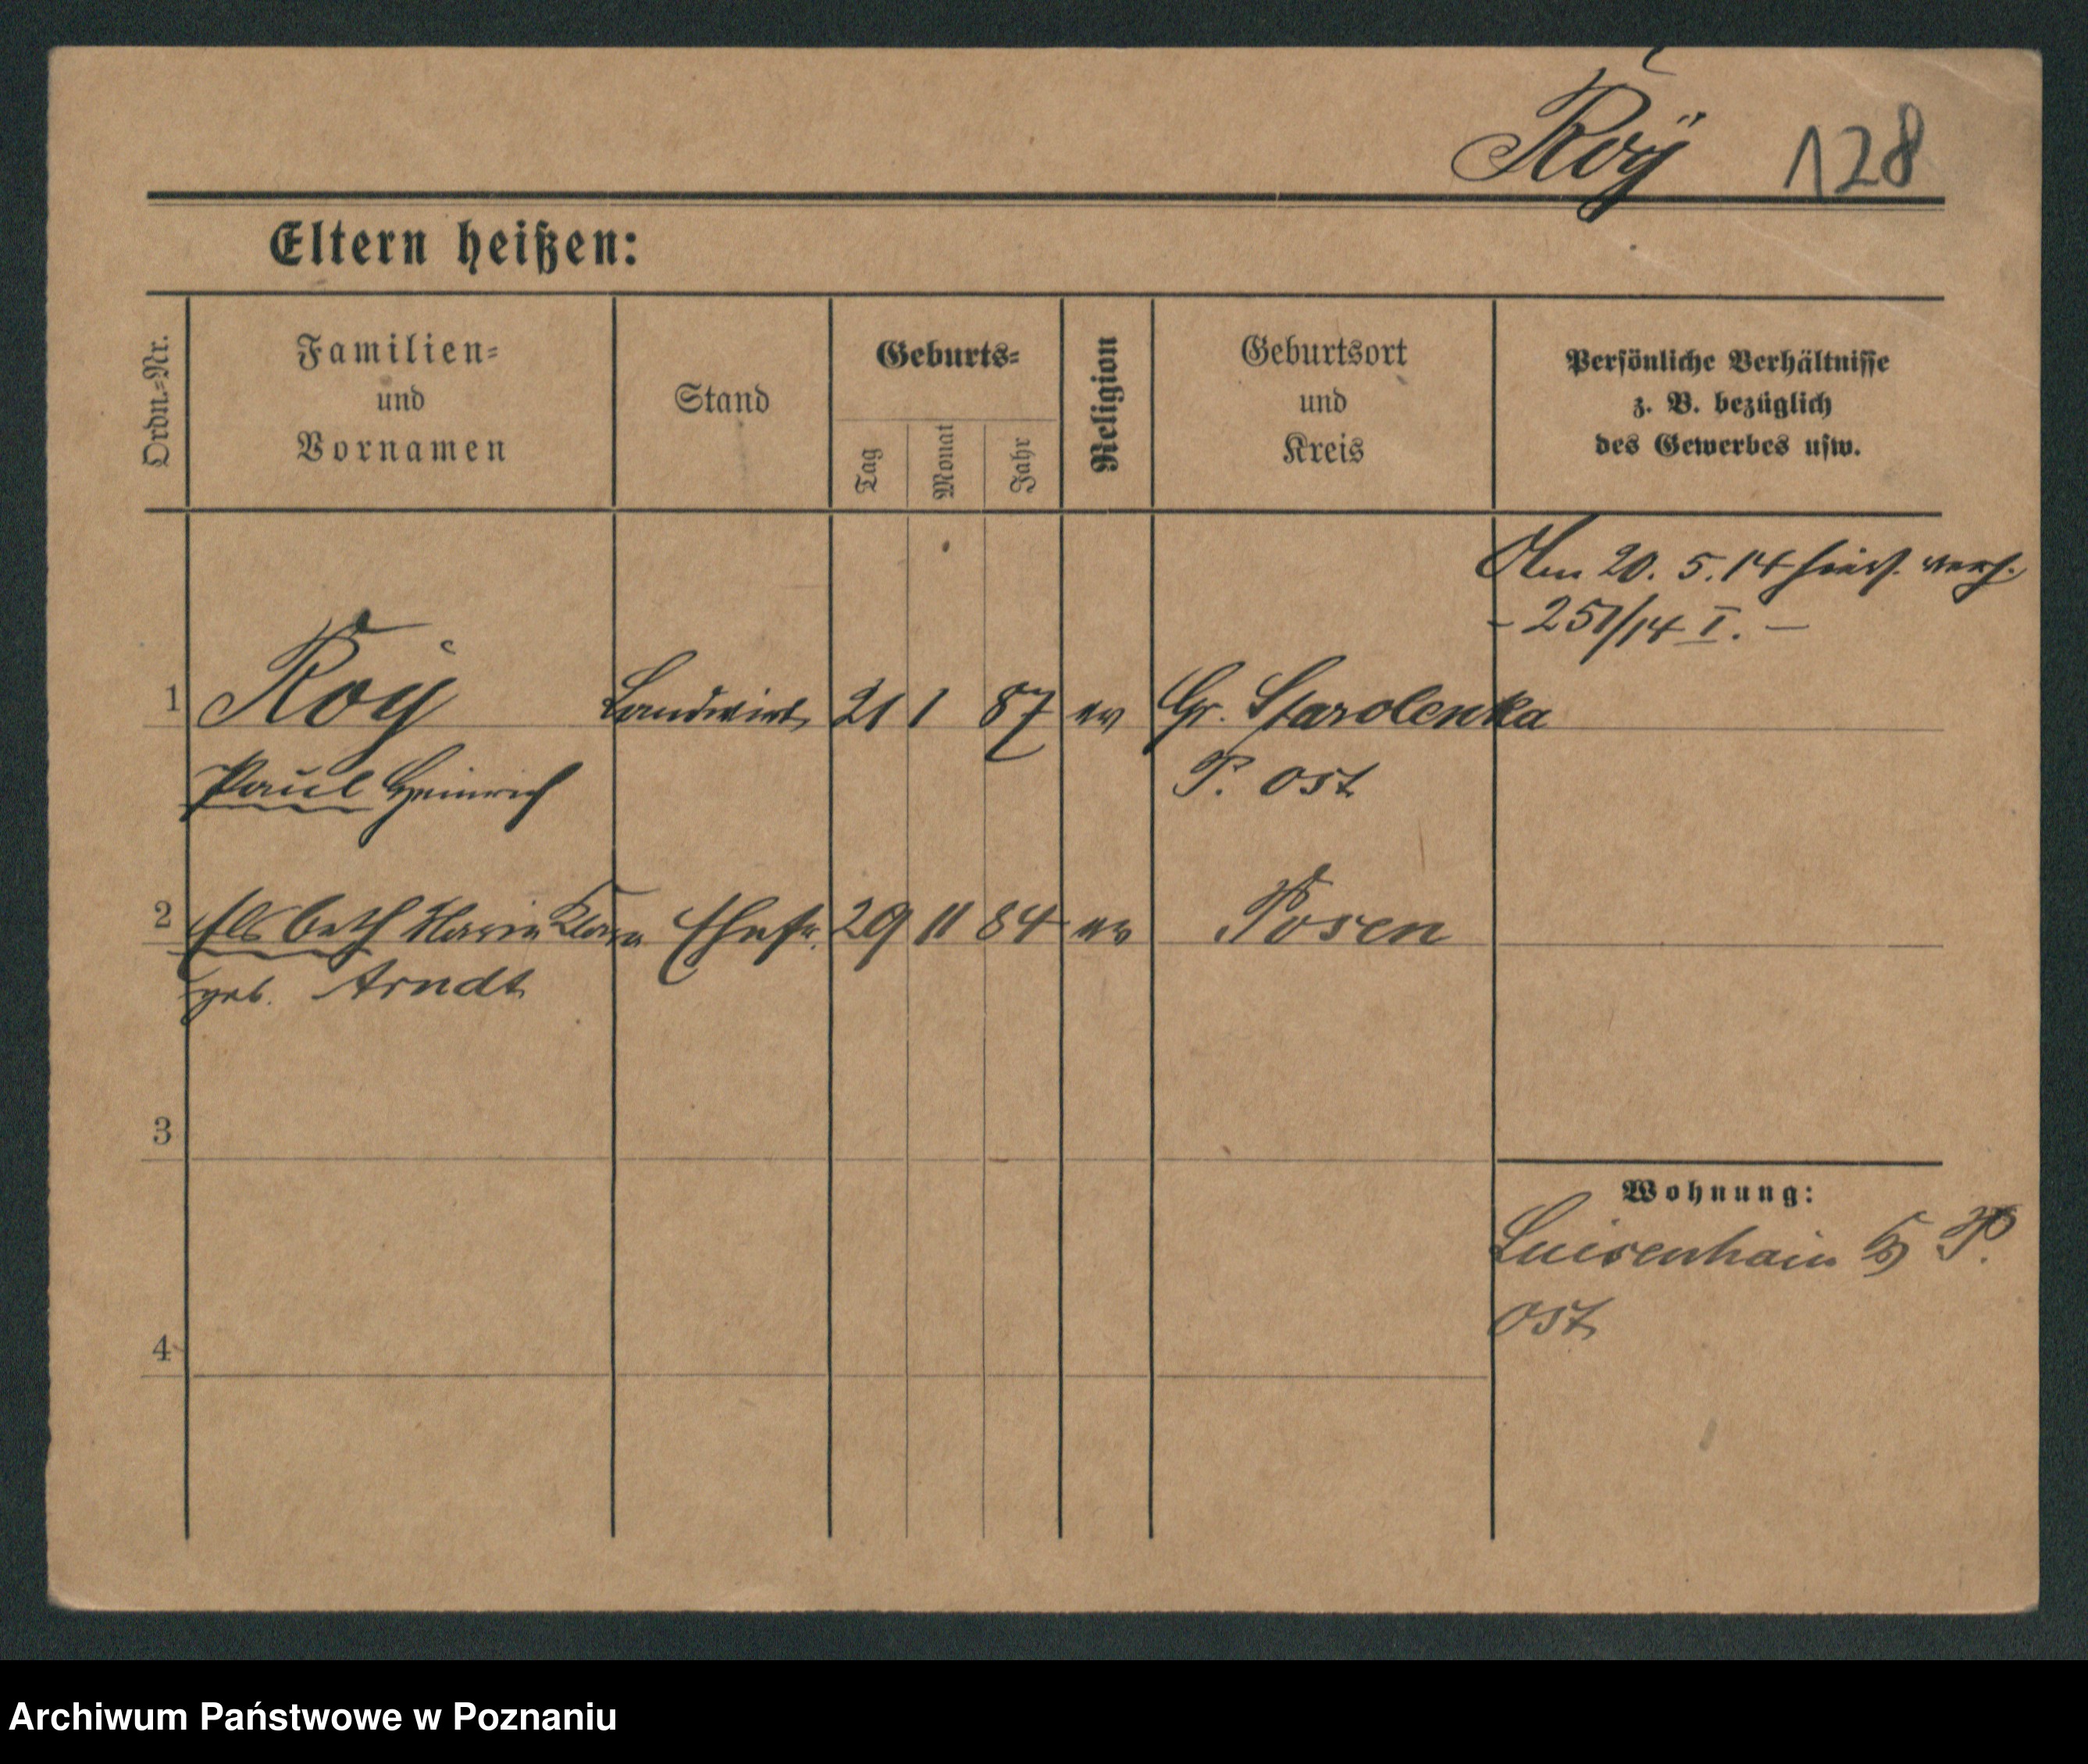 Roÿ 128
Eltern heißen:
Ordn.=Nr.
Familien=
und
Vornamen
Stand
Geburts=
Tag
Monat
Jahr
Religion
Geburtsort
und
Kreis
Persönliche Verhältnisse
z. B. bezüglich
des Gewerbes usw.
Am 20. 5. 14 hier verh.
- 251/14 I. -
1 Roÿ Landwirt 21 1 87 ev Gr. Starolenka
Paul Heinrich P. Ost
2 Elsbeth Maria Klara Ehefr. 29 11 84 ev Posen
geb. Arndt
3
Wohnung:
Luisenhain P.
Ost
4
Archiwum Państwowe w Poznaniu